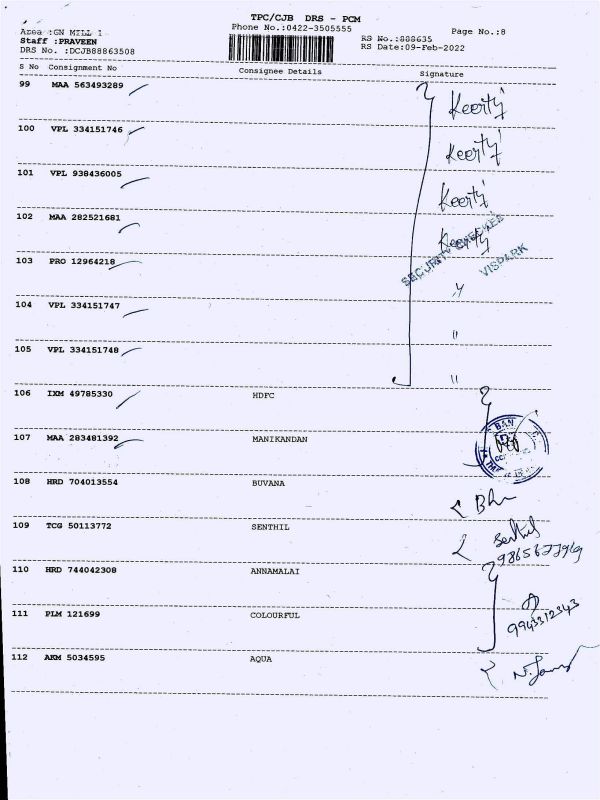 TPC/CJB DRS - PCM
Area :GN MILL 1
Phone No.:0422-3505555
Page No.:8
Staff :PRAVEEN
RS No.:888635
DRS No. :DCJB88863508
RS Date:09-Feb-2022
S No Consignment No Consignee Details Signature
99 MAA 563493289 Keerty
100 VPL 334151746 Keerty
101 VPL 938436005 Keerty
102 MAA 282521681 Keerty
SECURITY CHECKED
VISPARK
103 PRO 12964218 "
104 VPL 334151747 "
105 VPL 334151748 "
106 IXM 49785330 HDFC
107 MAA 283481392 MANIKANDAN
108 HRD 704013554 BUVANA
109 TCG 50113772 SENTHIL Senthil
110 HRD 744042308 ANNAMALAI
111 PLM 121699 COLOURFUL
9943312343
112 AKM 5034595 AQUA